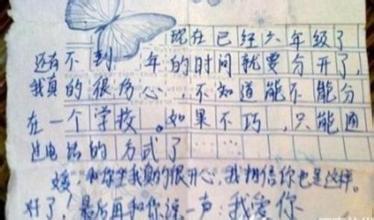 现在已经六年级了
还有不到一年的时间就要分开了,
我真的很伤心,不知道能不能分
在一个学校。如果不巧,只能通
过电话的方式了……
媛,和你坐我真的很开心,我相信你也是这样。
好了,最后再和你说一声:我爱你